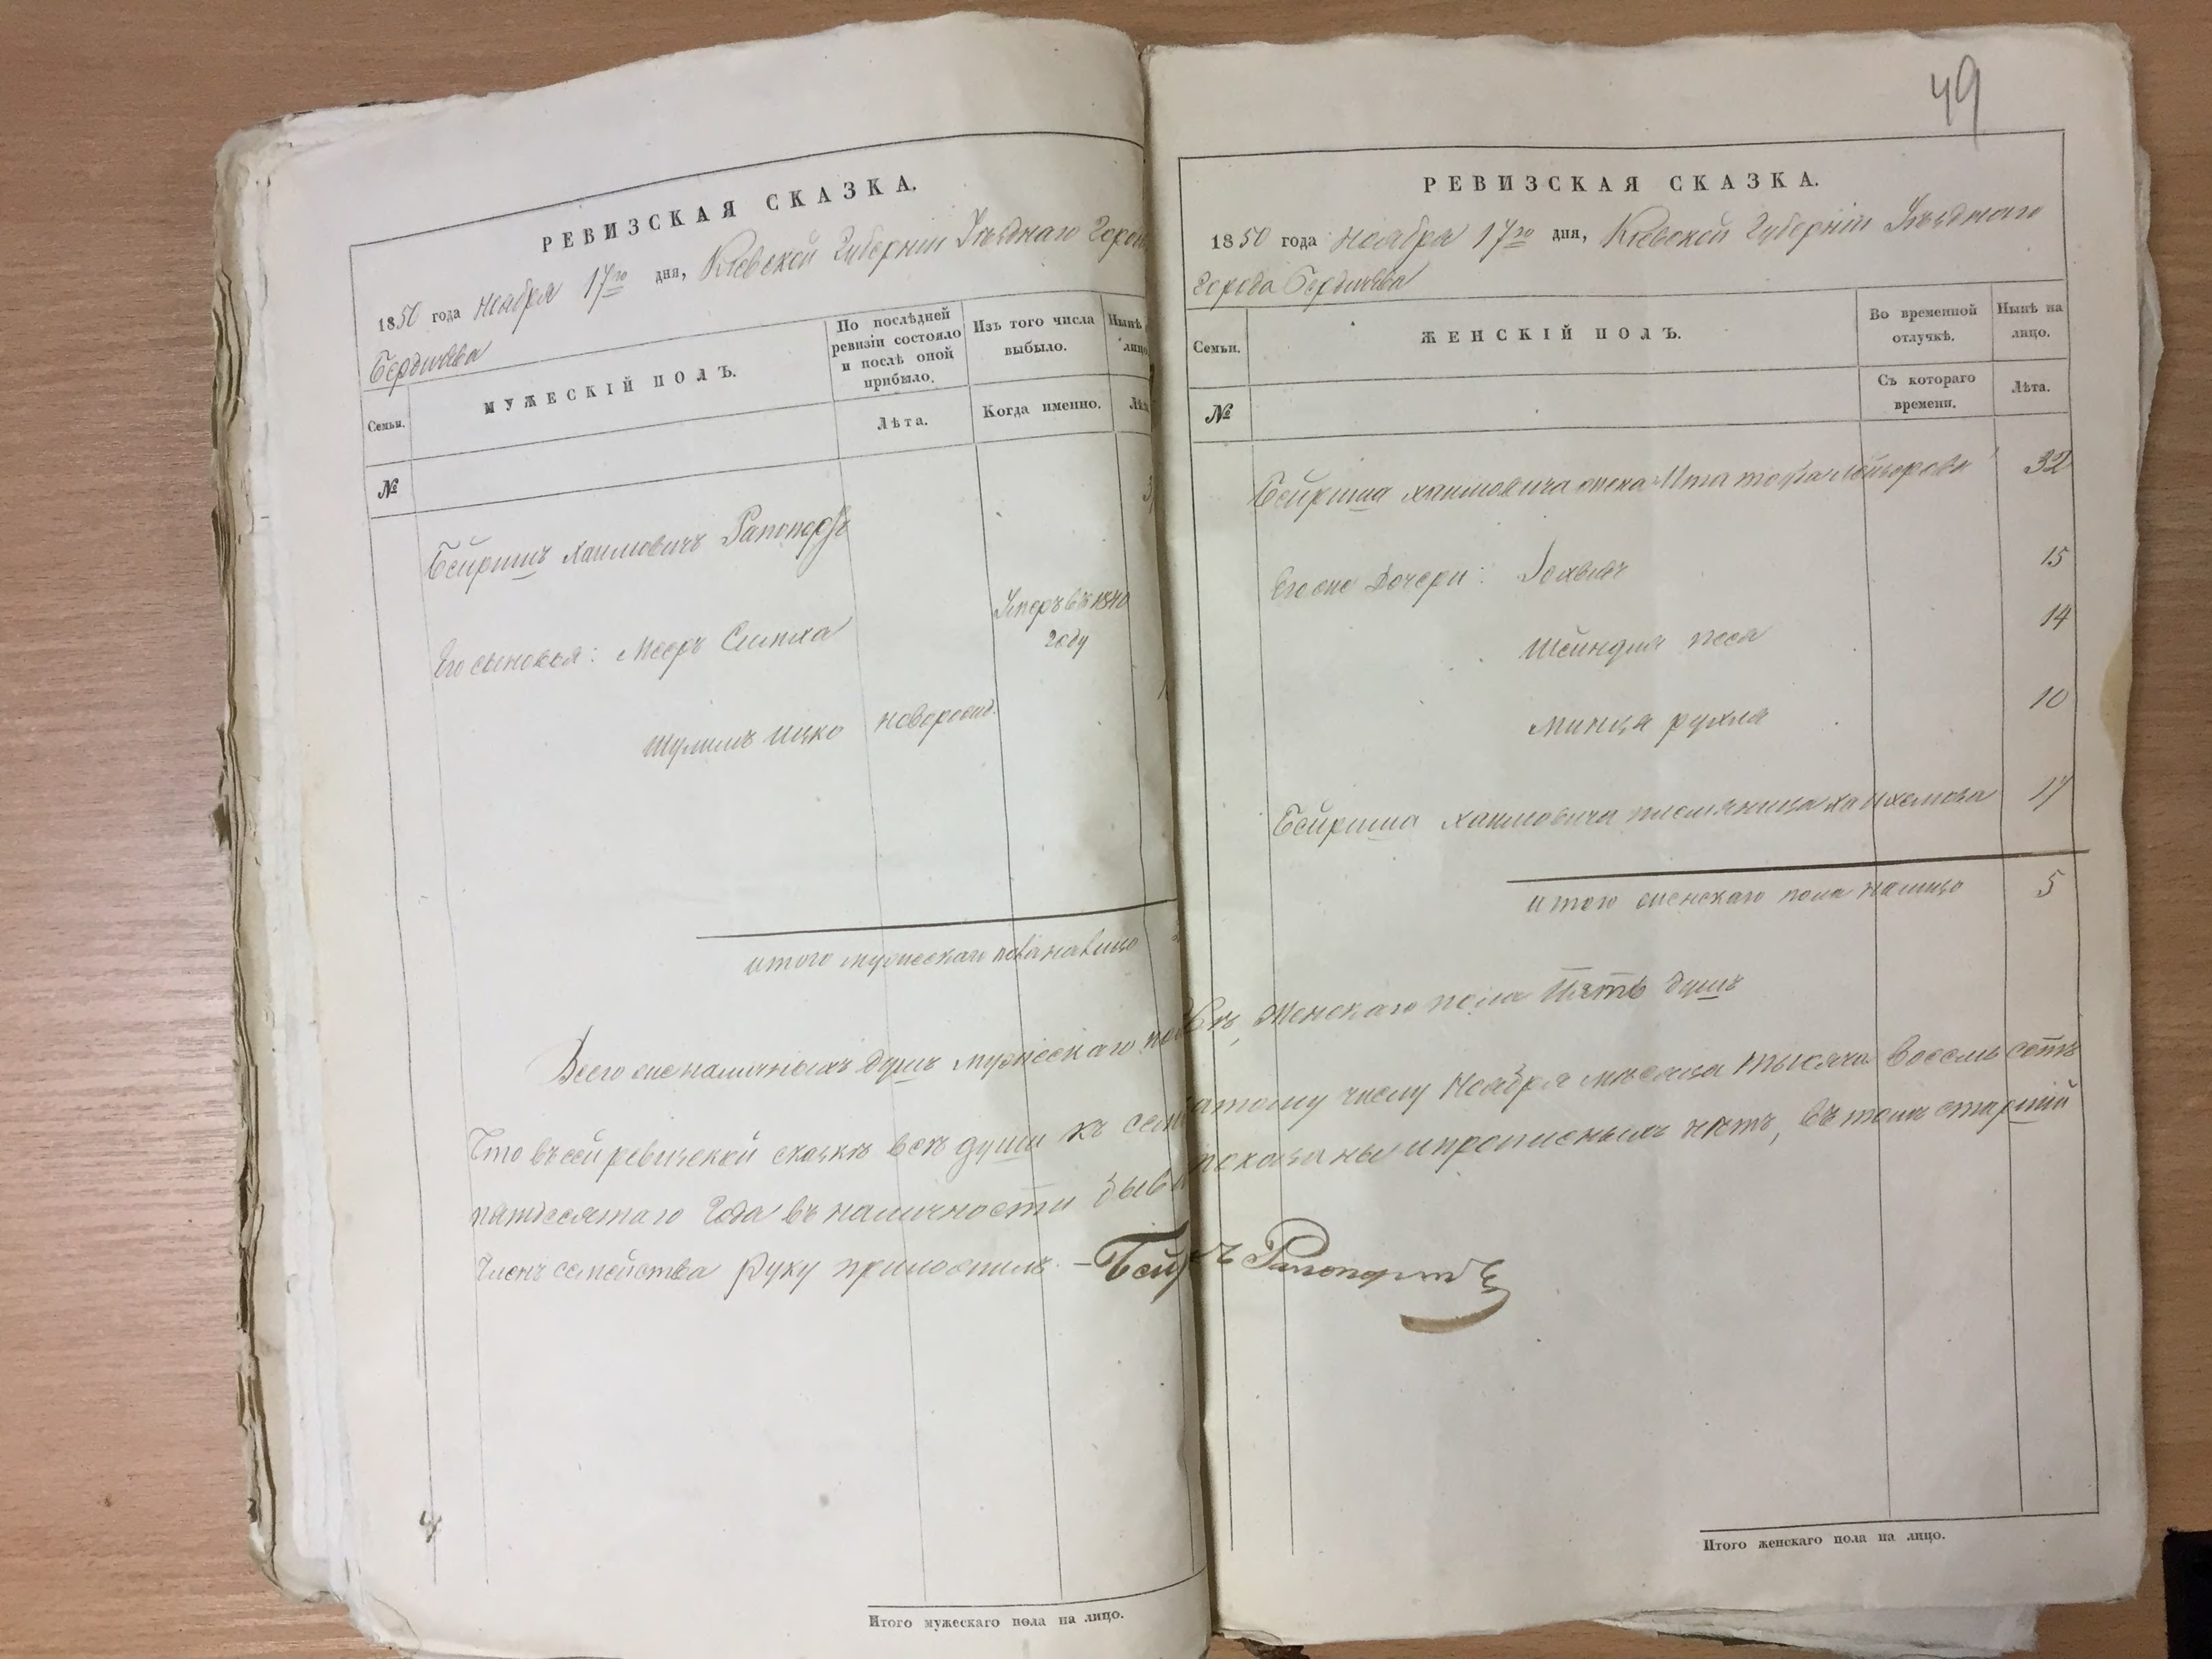 РЕВИЗСКАЯ СКАЗКА.
1850 года Ноября 17го дня, Кіевской Губерніи Уѣзднаго Горо
Бердичева
Семьи.
МУЖЕСКІЙ ПОЛЪ.
По послѣдней ревизіи состояло и послѣ оной прибыло.
Изъ того числа выбыло.
Нынѣ
лицо
№
Лѣта.
Когда именно.
Бейришъ Хаимовичъ Рапопортъ
Его сыновья: Мееръ Симха
Умеръ въ 1840 году
Шулимъ Ицко
новорожд.
итого мужескаго пола налицо
Всего же наличныхъ душъ мужескаго по
Что въ сей ревизской сказкѣ всѣ души къ сем
пятдесятаго Года въ наличности бывш
Членъ семейства руку приложилъ – Бей
Итого мужескаго пола на лицо.
49
РЕВИЗСКАЯ СКАЗКА.
1850 года Ноября 17го дня, Кіевской Губерніи Уѣзднаго
Города Бердичева
Семьи.
ЖЕНСКІЙ ПОЛЪ.
Во временной отлучкѣ.
Нынѣ на лицо.
№
Съ котораго времени.
Лѣта.
Бейриша Хаимовича жена Ита 32
Его же Дочери: 15
Шейндля Песа 14
Минця рухля 10
Бейриша Хаимовича племяница 17
итого женскаго пола налицо 5
Женскаго пола Пять душъ
атому числу Ноября мѣсяца тысяча восемь сотъ
показаны и прописныхъ нѣтъ, въ томъ старшій
Рапопортъ
Итого женскаго пола на лицо.